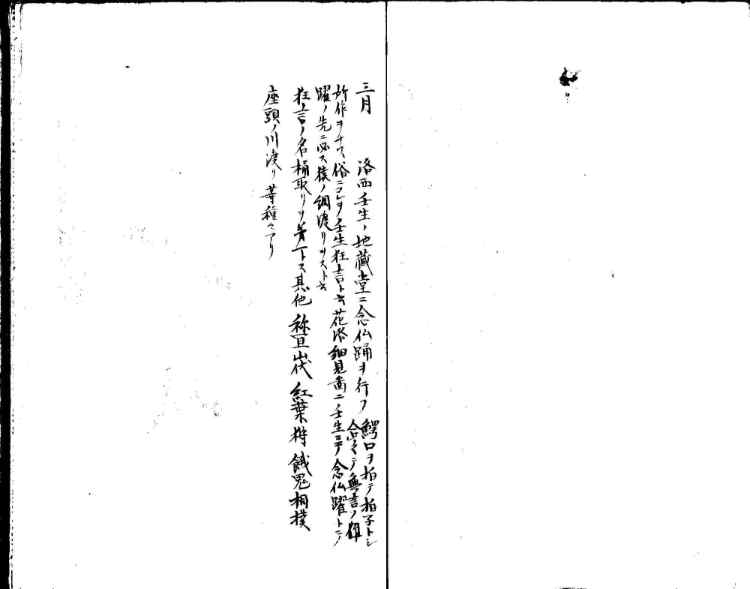 三月 洛西壬生ノ地藏堂ニ念仏踊ヲ行フ 鰐口ヲ拍テ拍子トシ
念シテ無言ノ俳
所作ヲナス俗ニコレヲ壬生狂言ト云花洛細見啚ニ壬生寺ノ念仏躍トテ
躍ノ先ニ必ス猿ノ綱渡リヲスト云
狂言ノ名桶取リヲ第一トス其他 祢宜山伏 紅葉狩 餓鬼相撲
座頭ノ川渡リ 等種々アリ